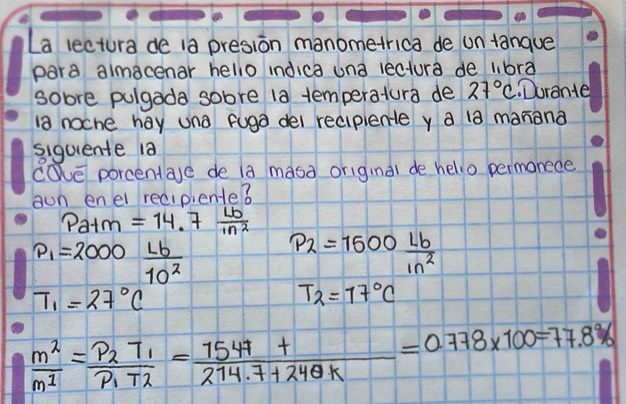 La lectura de la presión manometrica de un tanque
para almacenar helio indica una lectura de libra
sobre pulgada sobre la temperatura de 27°C. Durante
la noche hay una fuga del recipiente y a la mañana
siguiente la
¿Qué porcentaje de la masa original de helio permanece
aun en el recipiente?
Patm = 14.7 Lb/in²
P₁ = 2000 Lb/10² P₂ = 1500 Lb/in²
T₁ = 27°C T₂ = 17°C
m²/m1 = P₂ T₁/P₁ T2 = 1547 +/214.7 + 240K = 0.778 x 100 = 77.8%